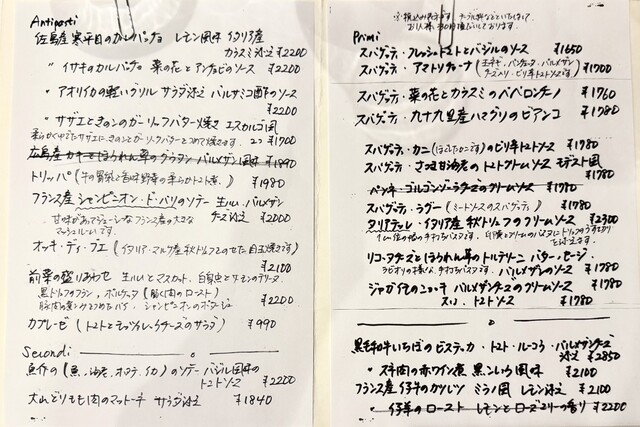 Antipasti
佐島産 寒平目のカルパッチョ レモン風味 イタリア産
カラスミ添え ¥2200
〃 イサキのカルパッチョ 菜の花とアンチョビのソース ¥2200
〃 アオリイカの軽いグリル サラダ添え バルサミコ酢のソース
¥2200
〃 サザエときのこのガーリックバター焼き エスカルゴ風
¥1700
広島産カキとほうれん草のグラタン パルメザン風味 ¥1890
トリッパ (牛の胃袋と香味野菜の柔らかトマト煮)
¥1980
フランス産 シャンピニオン・ド・パリのソテー 生ハム・パルメザン
チーズ添え ¥2000
甘味があってジューシーなフランス産の大きな
マッシュルームです。
オッキ・ディ・ブエ (イタリア・マルケ産秋トリュフをのせた目玉焼きです)
¥2100
前菜の盛りあわせ 生ハムとマスカット、白身魚とサーモンのテリーヌ
黒トリュフのフラン、ポルケッタ (豚肉のロースト)
シャンピニオンのポタージュ ¥2200
カプレーゼ (トマトとモッツァレッラチーズのサラダ) ¥990
Secondi
魚介の (魚、海老、ホタテ、イカ) のソテー バジル風味の
トマトソース ¥2200
大山どりもも肉のマットーネ サラダ添え ¥1840
Primi
スパゲッティ・フレッシュトマトとバジルのソース ¥1650
スパゲッティ・アマトリチャーナ (玉ネギ・パンチェッタ・パルメザン
チーズ入り・ピリ辛トマトソースです) ¥1700
スパゲッティ・菜の花とカラスミのペペロンチーノ ¥1760
スパゲッティ・九十九里産ハマグリのビアンコ ¥1780
スパゲッティ・カニ (ほぐしたカニです) のピリ辛トマトソース ¥1780
スパゲッティ・さつま甘海老のトマトクリームソース モデスト風
¥1780
ペンネ・ゴルゴンゾーラチーズのクリームソース ¥1780
スパゲッティ・ラグー (ミートソースのスパゲッティ) ¥1780
タリアテッレ・イタリア産 秋トリュフのクリームソース ¥2300
リコッタチーズとほうれん草のトルテリーニ バター・セージ・
パルメザンのソース ¥1780
ジャガイモのニョッキ パルメザンチーズのクリームソース ¥1780
又は、トマトソース ¥1780
黒毛和牛いちぼのビステッカ・トマト・ルーコラ・パルメザンチーズ
添え ¥2850
〃 スネ肉の赤ワイン煮 黒コショウ風味 ¥2100
フランス産 仔牛のカツレツ ミラノ風 レモン添え ¥2100
〃 仔羊のロースト レモンとローズマリーの香り ¥2200